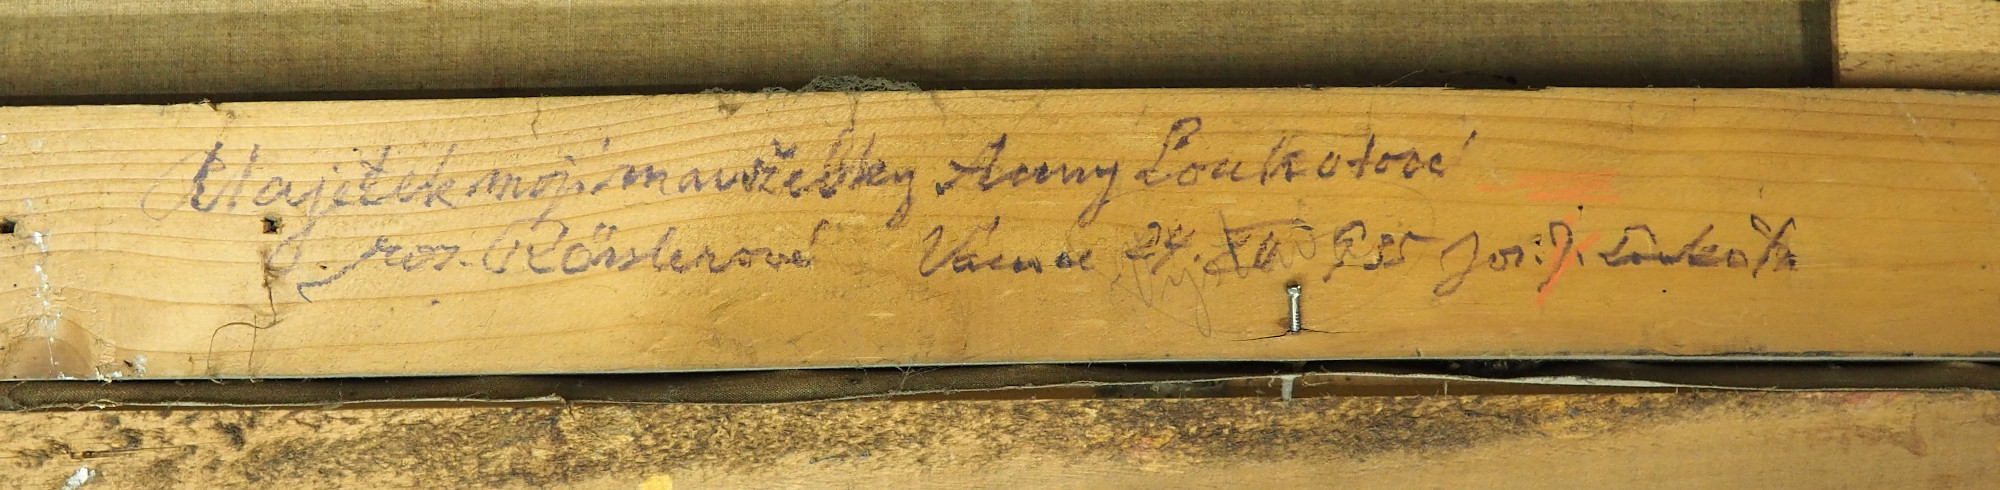 Majetek mojí manželky Anny Loukotové
roz. Rösslerové Vánoce 24. XII 935 Jos. J. Loukota